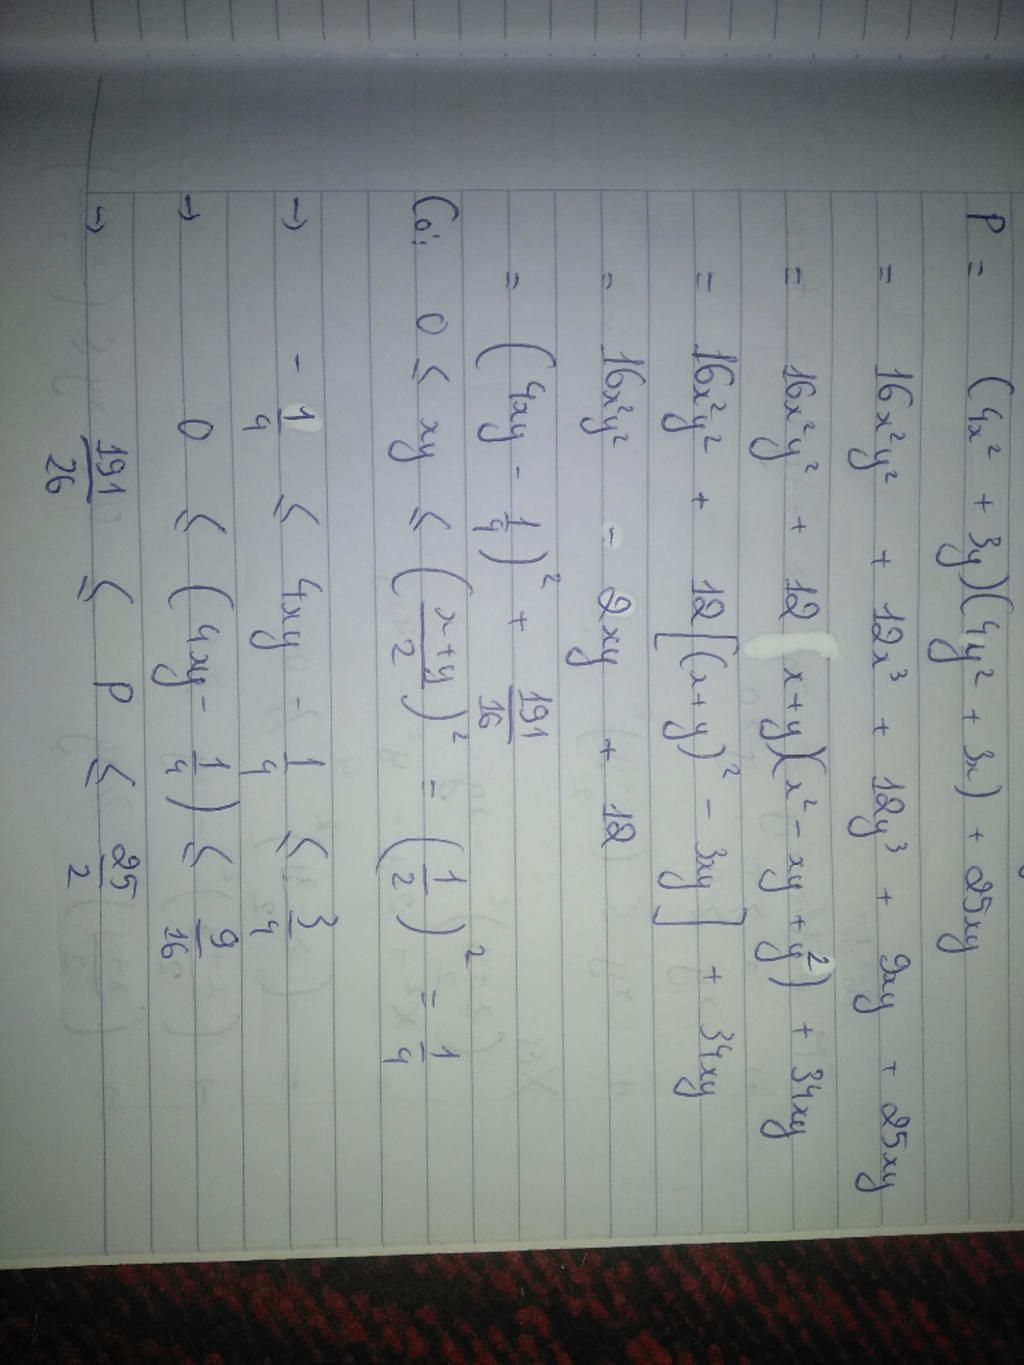 P = (4x² + 3y)(4y² + 3x) + 25xy
= 16x²y² + 12x³ + 12y³ + 9xy + 25xy
= 16x²y² + 12 x+y)(x² - xy + y²) + 34xy
= 16x²y² + 12[(x+y)² - 3xy] + 34xy
= 16x²y² - 2xy + 12
= (4xy - 1/4)² + 191/16
Có: 0 ≤ xy ≤ (x+y/2)² = (1/2)² = 1/4
→ - 1/4 ≤ 4xy - 1/4 ≤ 3/4
→ 0 ≤ (4xy - 1/4) ≤ 9/16
→ 191/26 ≤ P ≤ 25/2